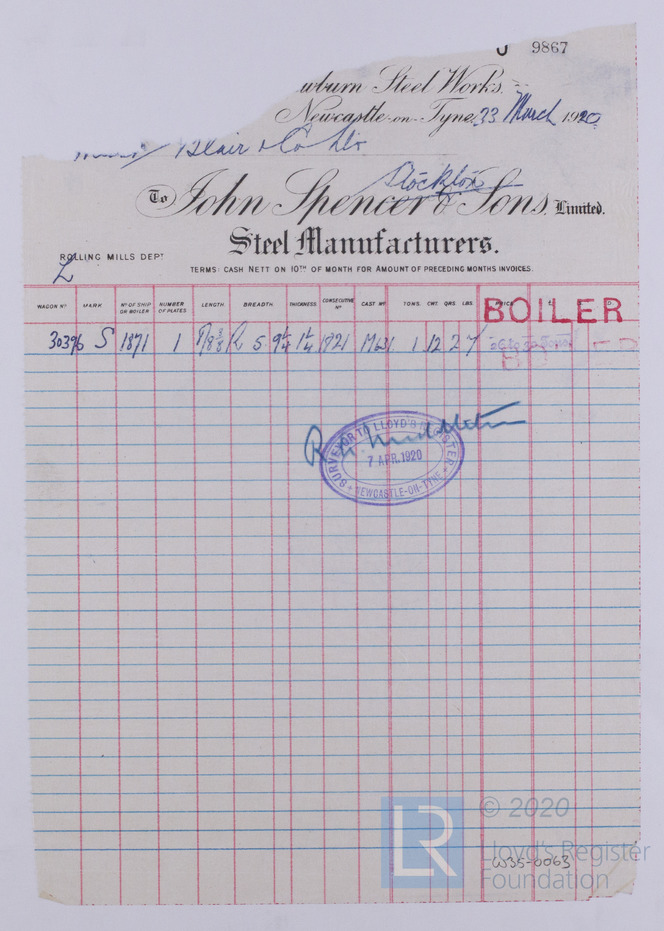 9867
wburn Steel Works.
Newcastle-on-Tyne 23 March 1920
Blair & Co Ltd
Stockton
To John Spencer & Sons, Limited.
Steel Manufacturers.
ROLLING MILLS DEPT
L
TERMS: CASH NETT ON 10TH OF MONTH FOR AMOUNT OF PRECEDING MONTHS INVOICES.
WAGON No MARK No OF SHIP OR BOILER NUMBER OF PLATES LENGTH BREADTH THICKNESS CONSECUTIVE No CAST No TONS. CWT. QRS. LBS. PRICE £ D.
BOILER
30396 S 1871 1 R 5 9¼ 1¼ 1821 1 12 2 7
R. Middleton
SURVEYOR TO LLOYD'S REGISTER
7 APR. 1920
NEWCASTLE-ON-TYNE
LR
© 2020
Lloyd's Register
Foundation
W35-0063